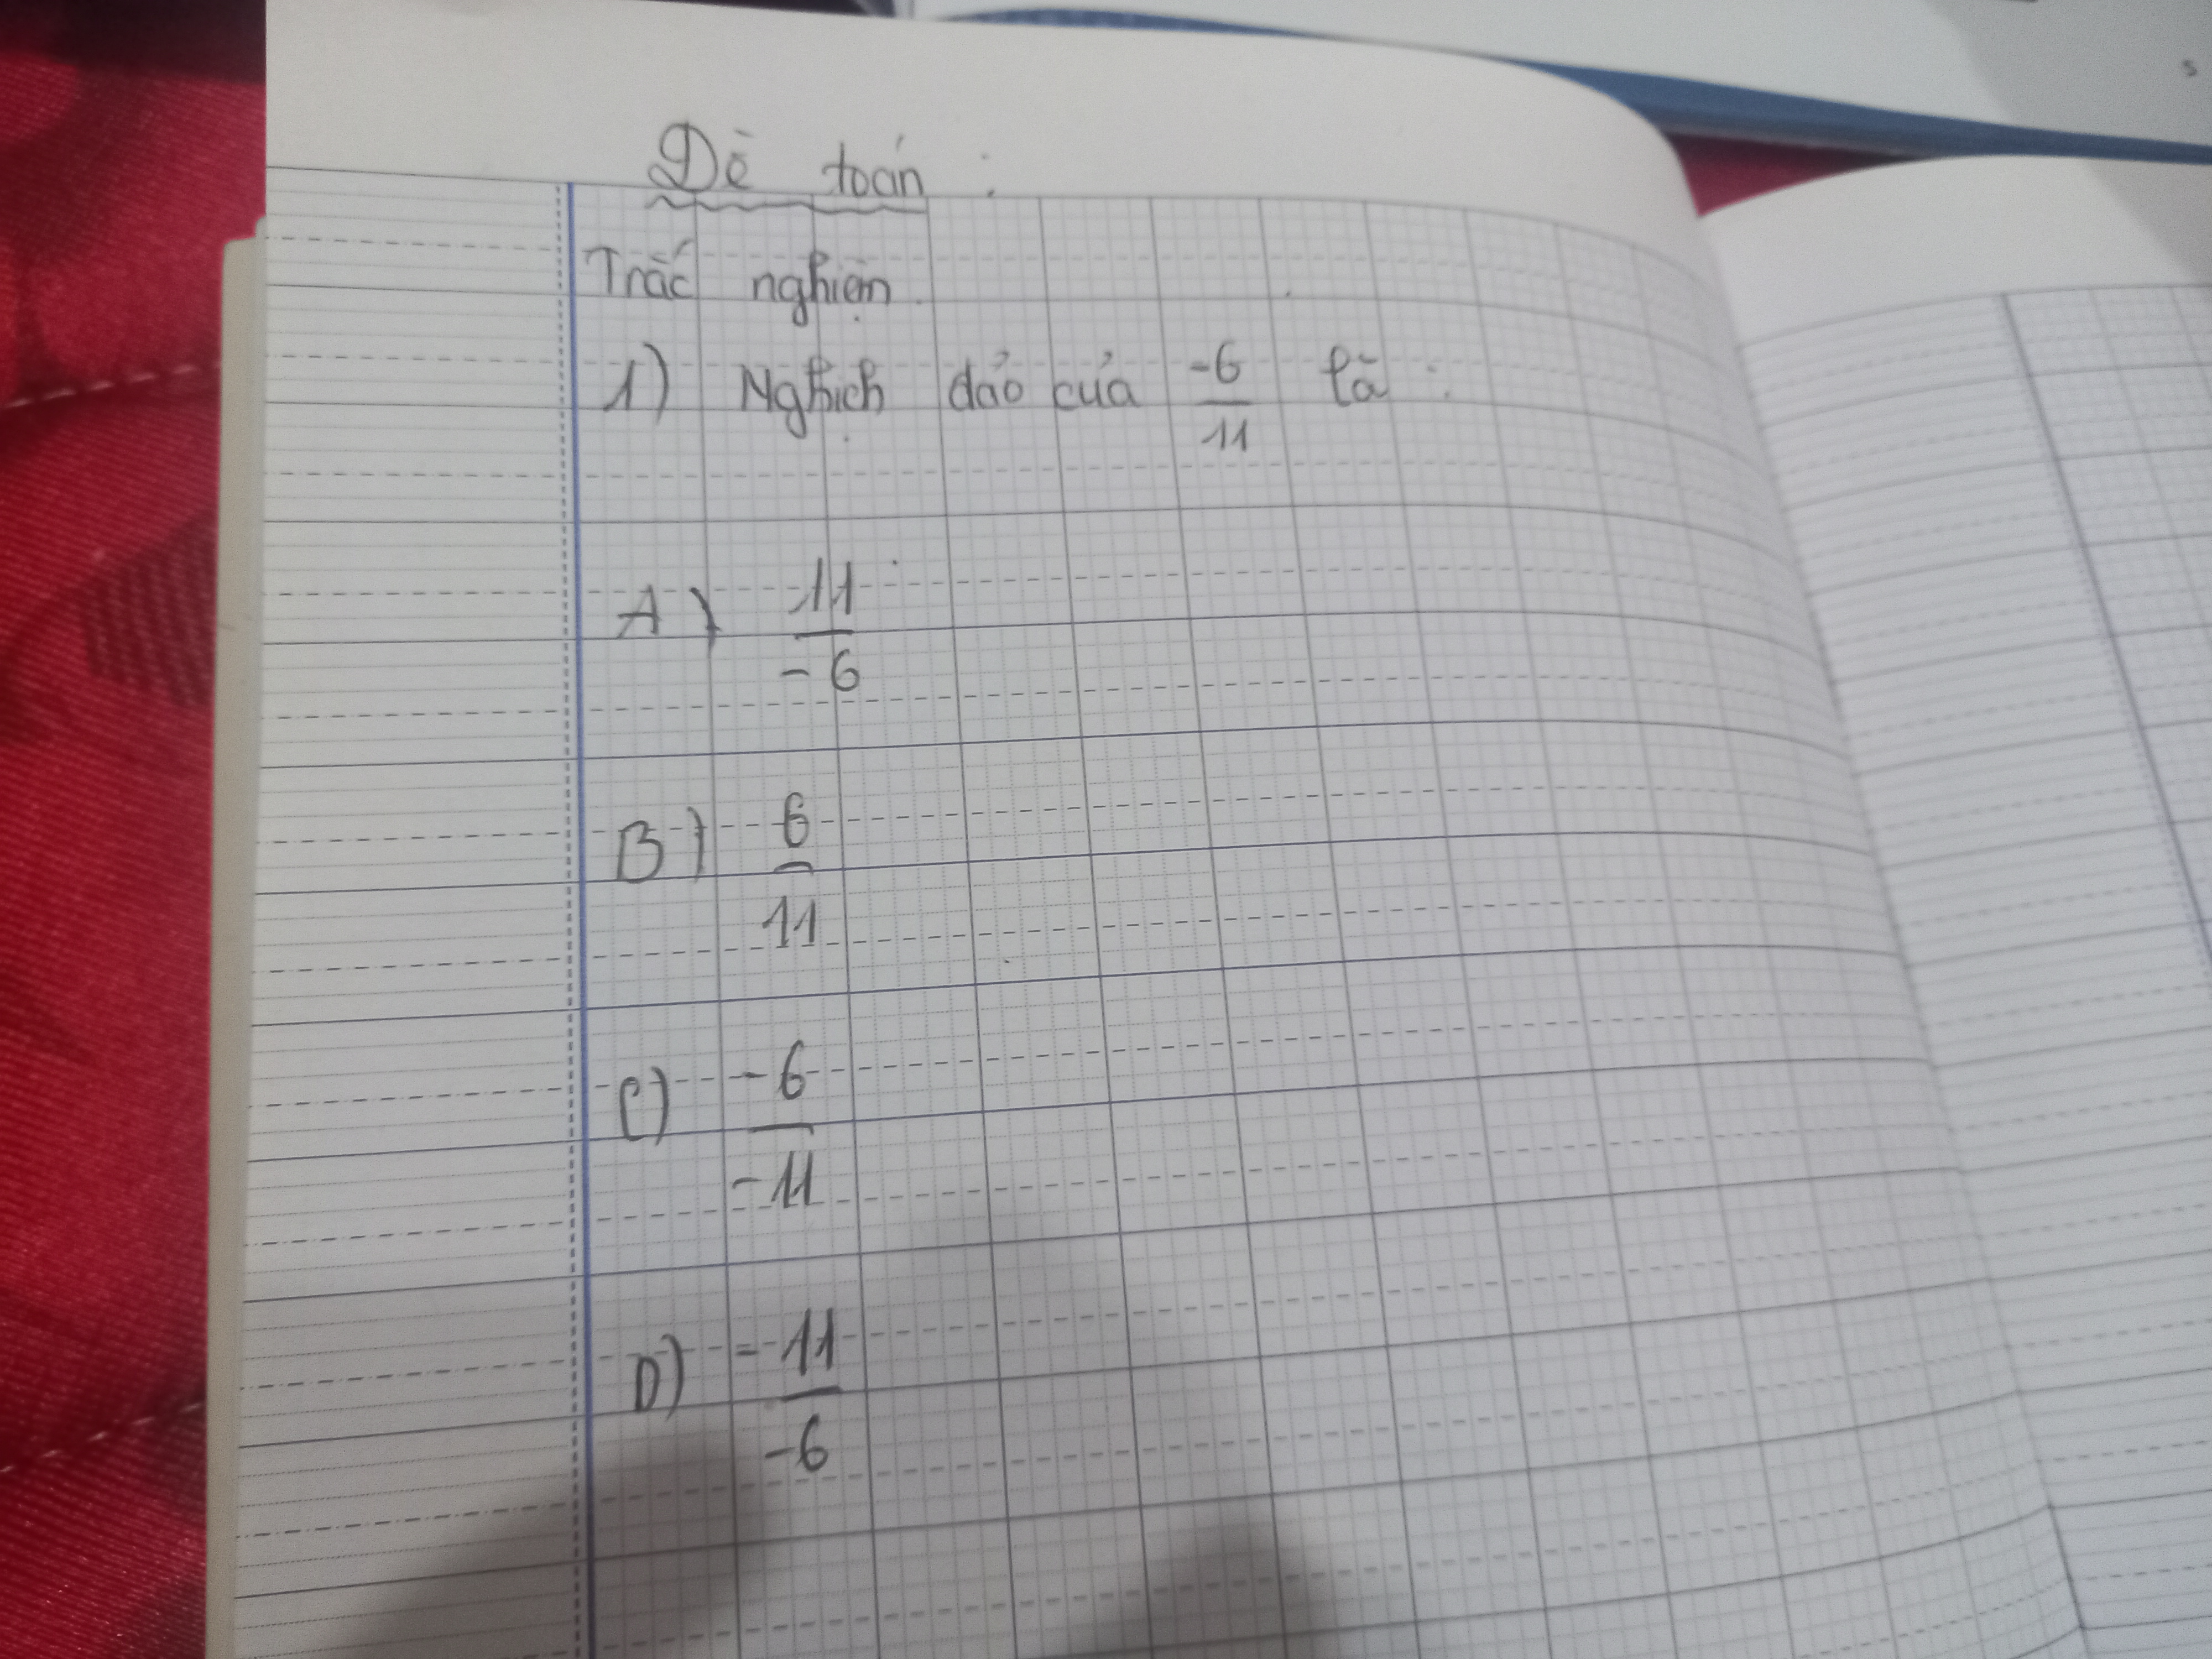 Đề toán :
Trắc nghiệm
1) Nghịch đảo của -6/11 là :
A) 11/-6
B) 6/11
C) -6/-11
D) -11/-6